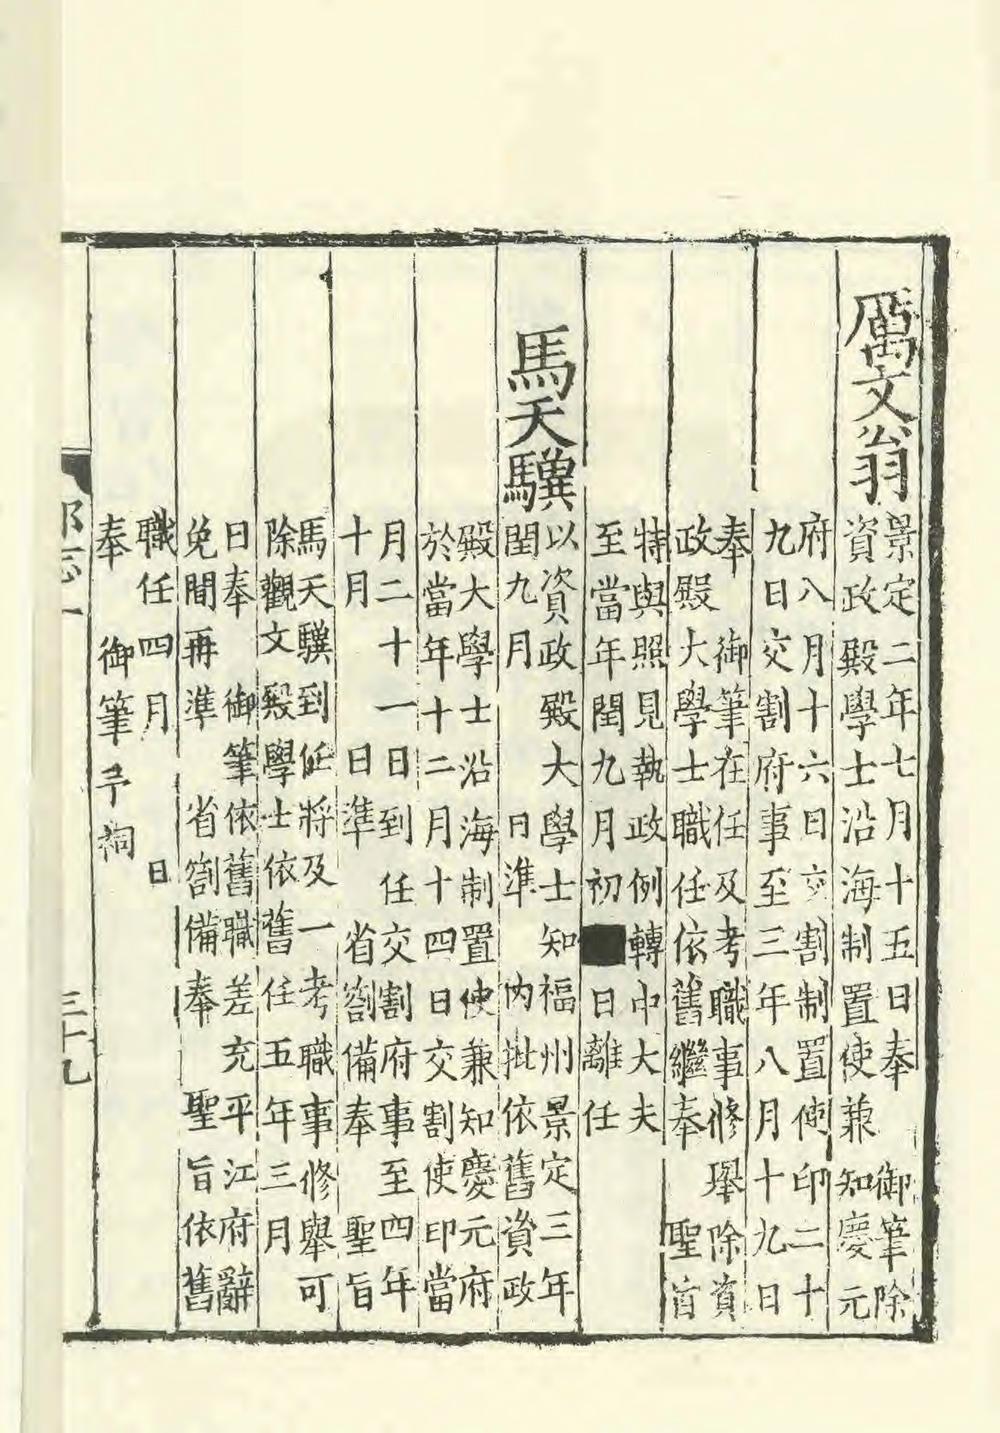 厲文翁
景定二年七月十五日奉 御筆除
資政殿學士沿海制置使兼知慶元
府八月十六日交割制置使印二十
九日交割府事至三年八月十九日
奉 御筆在任及考職事修舉除資
政殿大學士職任依舊繼奉 聖旨
特與照見執政例轉中大夫
至當年閏九月初■日離任
馬天驥
以資政殿大學士知福州景定三年
閏九月 日準 內批依舊資政
殿大學士沿海制置使兼知慶元府
於當年十二月十四日交割使印當
月二十一日到任交割府事至四年
十月 日準 省劄備奉 聖旨
馬天驥到任將及一考職事修舉可
除觀文殿學士依舊任五年三月
日奉 御筆依舊職差充平江府辭
免間再準 省劄備奉 聖旨依舊
職任四月 日
奉 御筆予祠
三十九